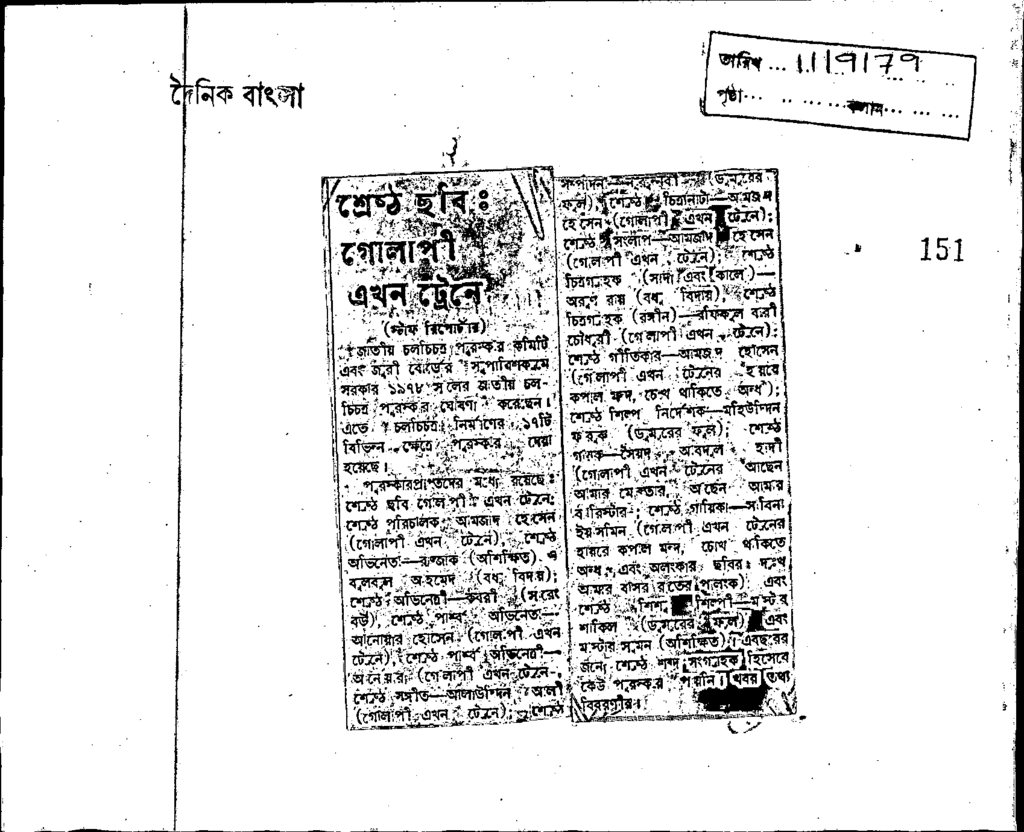 দৈনিক বাংলা
তারিখ ... 11/9/79
পৃষ্ঠা ... কলাম ...
151
শ্রেষ্ঠ ছবি ঃ
গোলাপী
এখন ট্রেনে
(স্টাফ রিপোর্টার)
জাতীয় চলচ্চিত্র পুরস্কার কমিটি
এবং জুরী বোর্ডের সুপারিশক্রমে
সরকার ১৯৭৮ সালের জাতীয় চল-
চ্চিত্র পুরস্কার ঘোষণা করেছেন।
এতে চলচ্চিত্র নির্মাণের ১৭টি
বিভিন্ন ক্ষেত্রে পুরস্কার দেয়া
হয়েছে।
পুরস্কারপ্রাপ্তদের মধ্যে রয়েছে ঃ
শ্রেষ্ঠ ছবি গোলাপী এখন ট্রেনে;
শ্রেষ্ঠ পরিচালক আমজাদ হোসেন
(গোলাপী এখন ট্রেনে), শ্রেষ্ঠ
অভিনেতা—রাজ্জাক (অশিক্ষিত) ও
বুলবুল আহমেদ (বধু বিদায়);
শ্রেষ্ঠ অভিনেত্রী—কবরী (সারেং
বউ), শ্রেষ্ঠ পার্শ্ব অভিনেতা—
আনোয়ার হোসেন (গোলাপী এখন
ট্রেনে), শ্রেষ্ঠ পার্শ্ব অভিনেত্রী—
আনোয়ারা (গোলাপী এখন ট্রেনে,
শ্রেষ্ঠ সঙ্গীত—আলাউদ্দিন আলী
(গোলাপী এখন ট্রেনে); শ্রেষ্ঠ
সম্পাদনা (ডুমুরের
ফুল) শ্রেষ্ঠ চিত্রনাট্য—আমজাদ
হোসেন (গোলাপী এখন ট্রেনে);
শ্রেষ্ঠ সংলাপ—আমজাদ হোসেন
(গোলাপী এখন ট্রেনে); শ্রেষ্ঠ
চিত্রগ্রাহক (সাদা এবং কালো)—
অরুণ রায় (বধু বিদায়), শ্রেষ্ঠ
চিত্রগ্রাহক (রঙ্গীন)—রফিকুল বারী
চৌধুরী (গোলাপী এখন ট্রেনে);
শ্রেষ্ঠ গীতিকার—আমজাদ হোসেন
(গোলাপী এখন ট্রেনের হায়রে
কপাল মন্দ, চোখ থাকিতে অন্ধ);
শ্রেষ্ঠ শিল্প নির্দেশক—মহিউদ্দিন
ফারুক (ডুমুরের ফুল); শ্রেষ্ঠ
গায়ক—সৈয়দ আবদুল হাদী
(গোলাপী এখন ট্রেনের আছেন
আমার মোক্তার, আছেন আমার
ব্যারিস্টার; শ্রেষ্ঠ গায়িকা—সাবিনা
ইয়াসমিন (গোলাপী এখন ট্রেনের
হায়রে কপাল মন্দ, চোখ থাকিতে
অন্ধ, এবং অলংকার ছবির ঃ দুঃখ
আমার বাসর রাতের পালংক) এবং
শ্রেষ্ঠ শিশু শিল্পী—মাস্টার
শাকিল (ডুমুরের ফুল) এবং
মাস্টার সুমন (অশিক্ষিত)। এবছরের
জন্যে শ্রেষ্ঠ শব্দ সংগ্রাহক হিসেবে
কেউ পুরস্কার পাননি। খবর তথ্য
বিবরণীর।